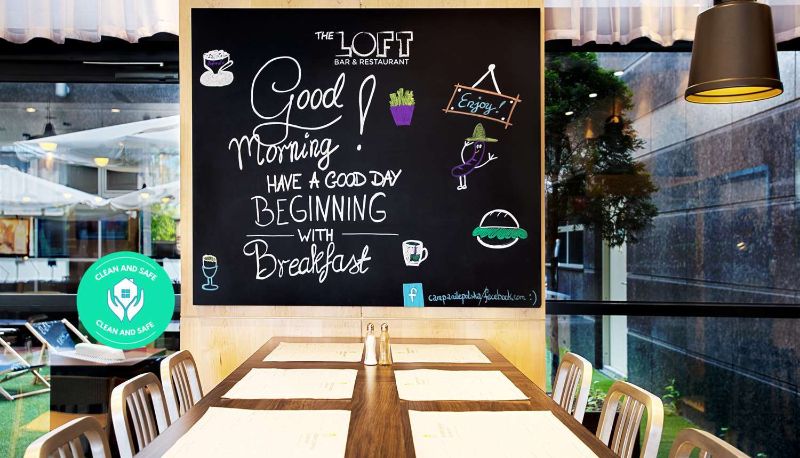 THE LOFT
BAR & RESTAURANT
Good
Morning!
HAVE A GOOD DAY
BEGINNING
WITH
Breakfast
Enjoy!
f campanilepolska/facebook.com :)
CLEAN AND SAFE
CLEAN AND SAFE